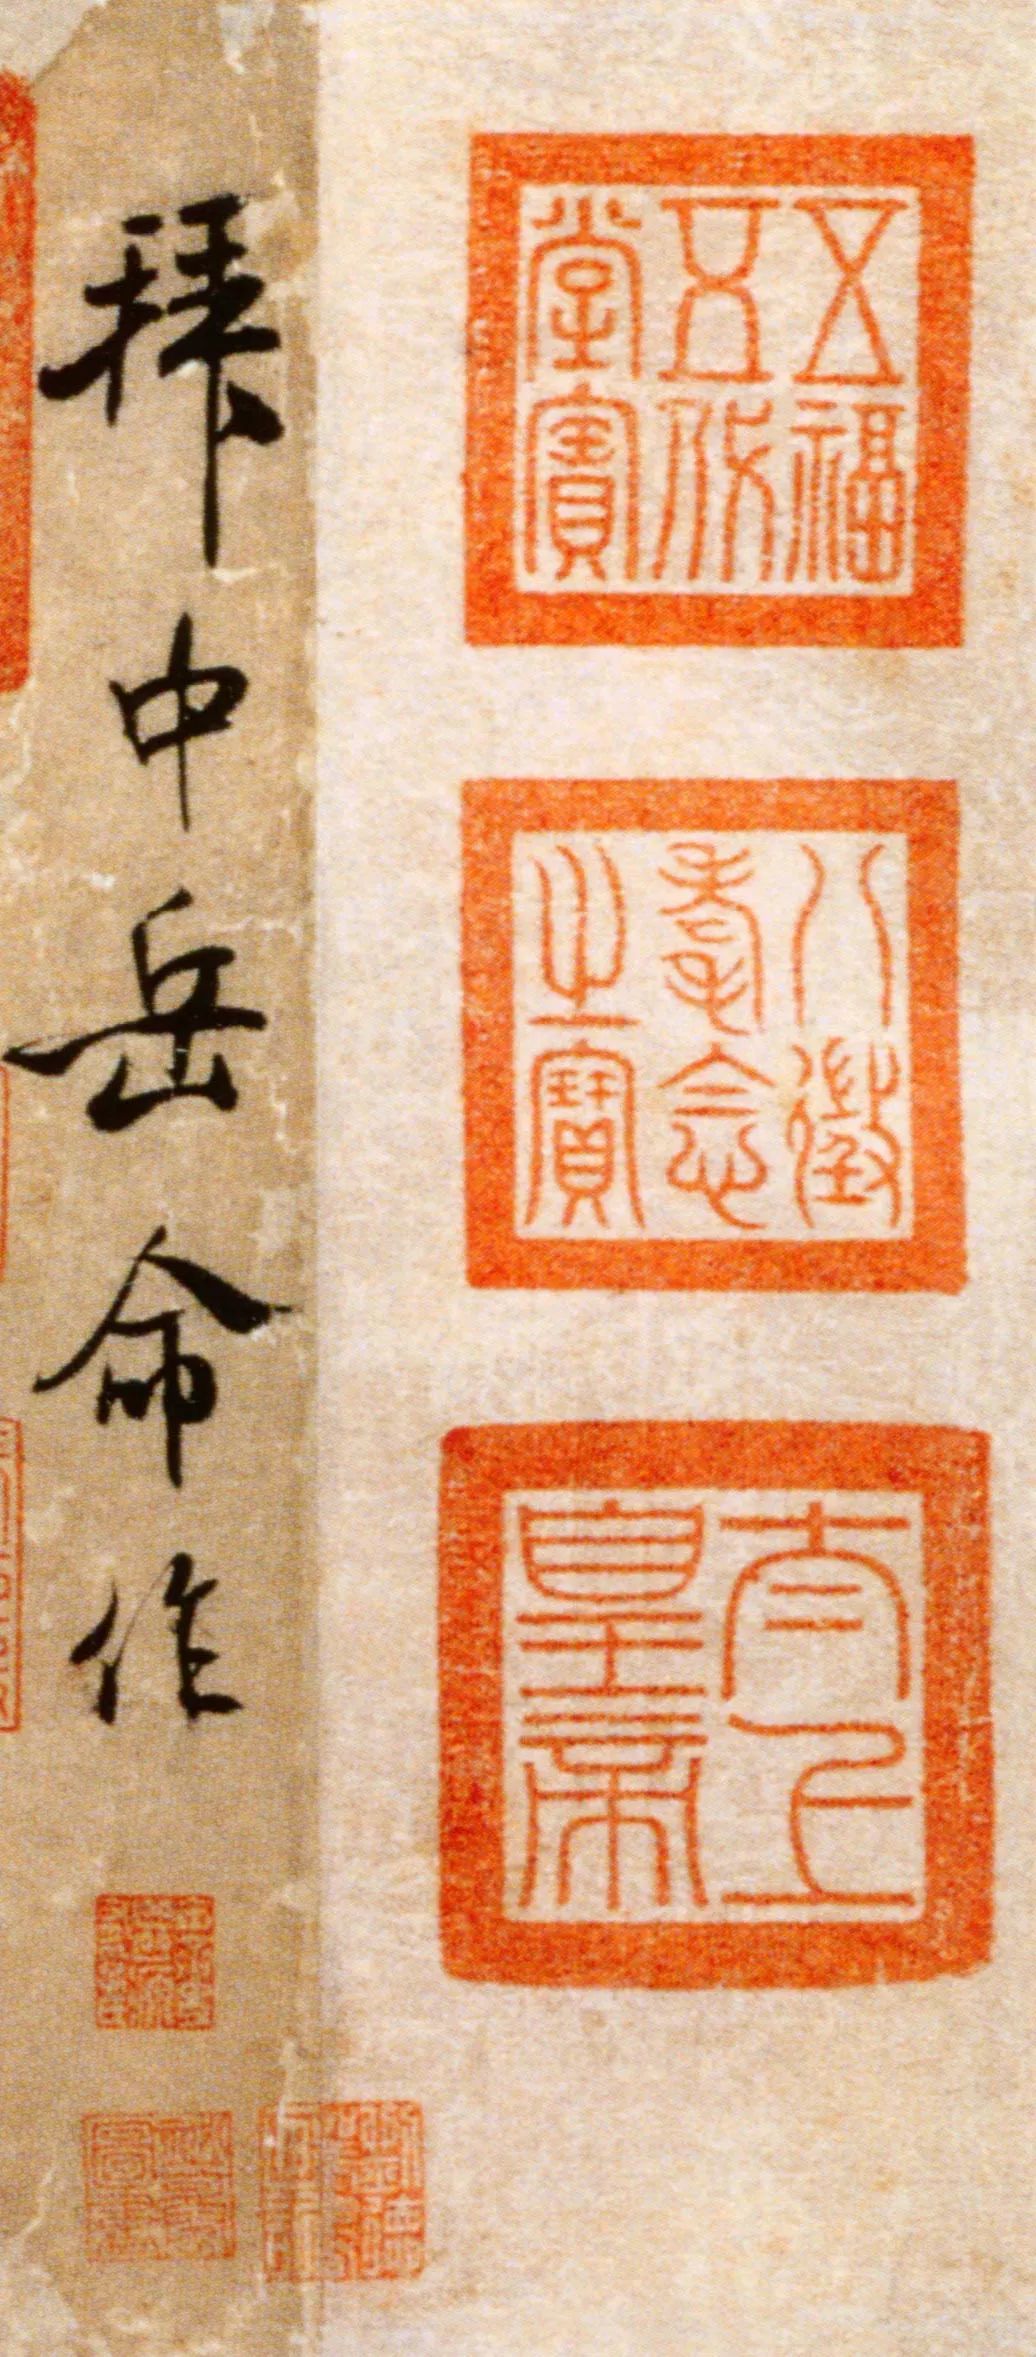 五福五代堂寶
八徵耄念之寶
太上皇帝
拜中岳命作